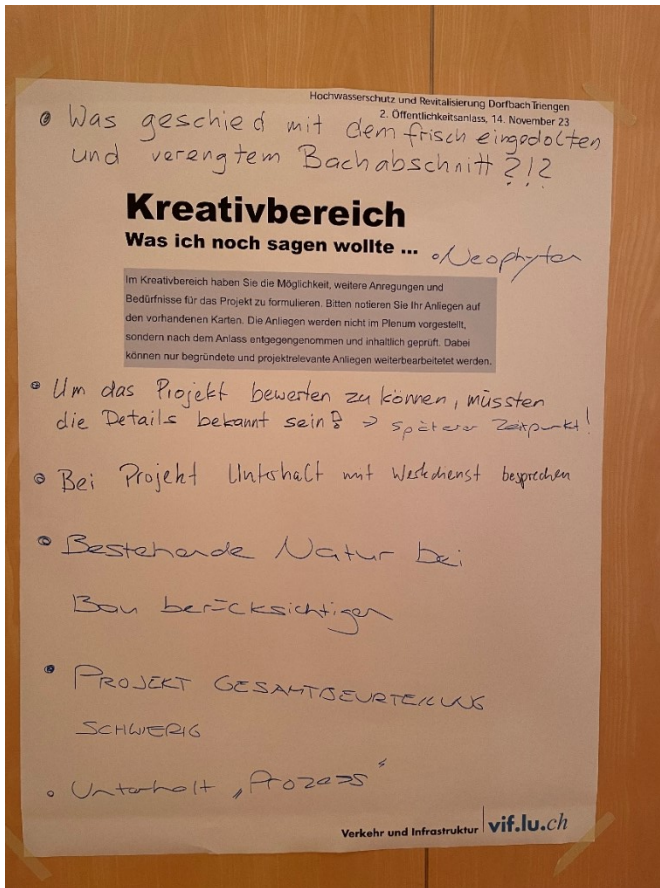 Hochwasserschutz und Revitalisierung Dorfbach Triengen
2. Öffentlichkeitsanlass, 14. November 23
• Was geschied mit dem frisch eingedolten
und verengtem Bachabschnitt ?!?
Kreativbereich
Was ich noch sagen wollte ...
• Neophyten
Im Kreativbereich haben Sie die Möglichkeit, weitere Anregungen und
Bedürfnisse für das Projekt zu formulieren. Bitten notieren Sie Ihr Anliegen auf
den vorhandenen Karten. Die Anliegen werden nicht im Plenum vorgestellt,
sondern nach dem Anlass entgegengenommen und inhaltlich geprüft. Dabei
können nur begründete und projektrelevante Anliegen weiterbearbeitetet werden.
• Um das Projekt bewerten zu können, müssten
die Details bekannt sein! → Späterer Zeitpunkt!
• Bei Projekt Unterhalt mit Werkdienst besprechen
• Bestehende Natur bei
Bau berücksichtigen
• PROJEKT GESAMTBEURTEILUNG
SCHWERIG
• Unterhalt „Prozess“
Verkehr und Infrastruktur | vif.lu.ch